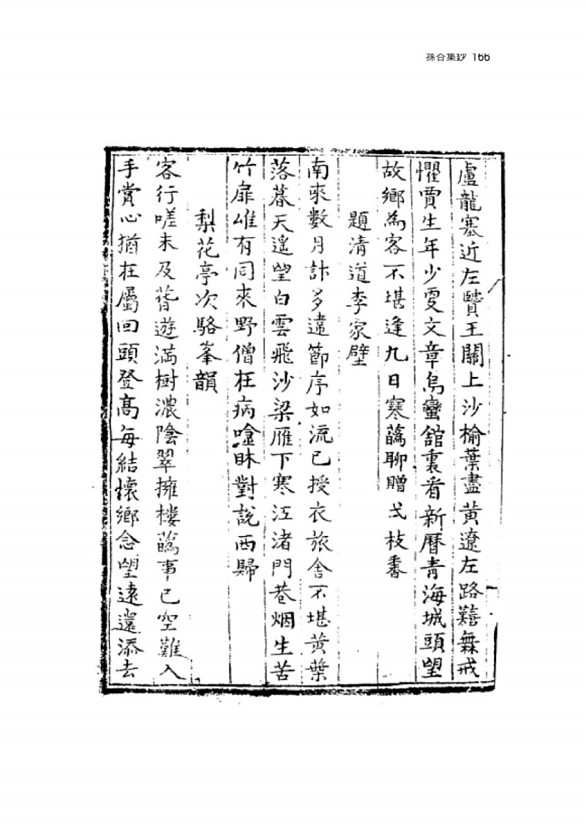 孫合集鈔 166
盧龍塞近左賢王關上沙榆葉盡黃遼左路難無戒
懼賈生年少更文章烏蠻舘裏看新曆青海城頭望
故鄉為客不堪逢九日寒蘤聊贈弍枝香
題清道李家壁
南來數月計多違節序如流已授衣旅舍不堪黃葉
落暮天遙望白雲飛沙梁雁下寒江渚門巷烟生苦
竹扉雖有同來野僧在病嗆眛對說西歸
梨花亭次駱峯韻
客行嗟未及昔遊滿樹濃陰翠擁樓蘤事已空難入
手賞心猶在屬回頭登高每結懷鄉念望遠還添去